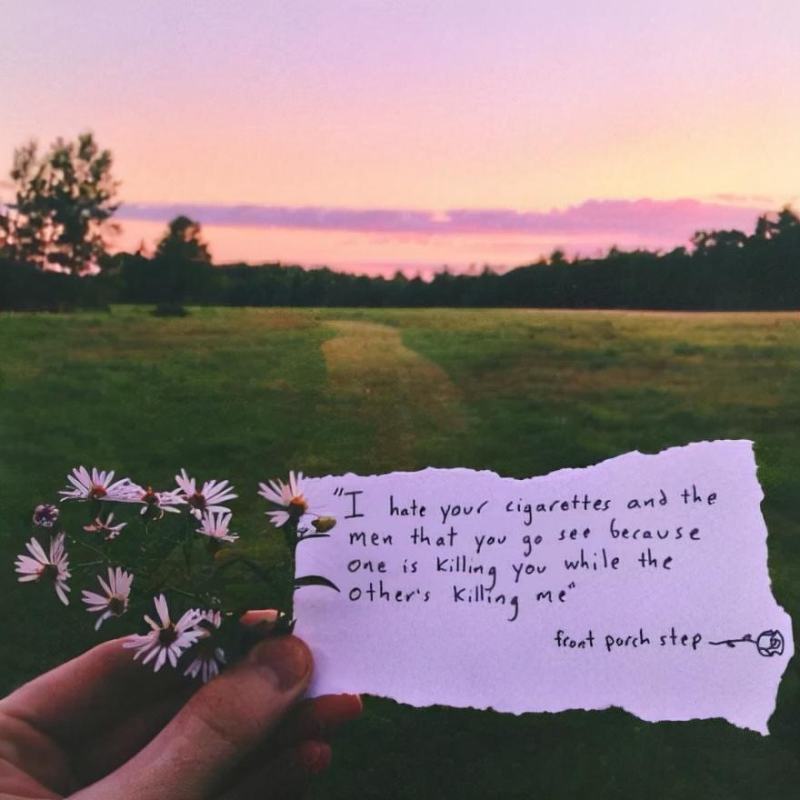 "I hate your cigarettes and the
men that you go see because
one is killing you while the
other's killing me"
front porch step